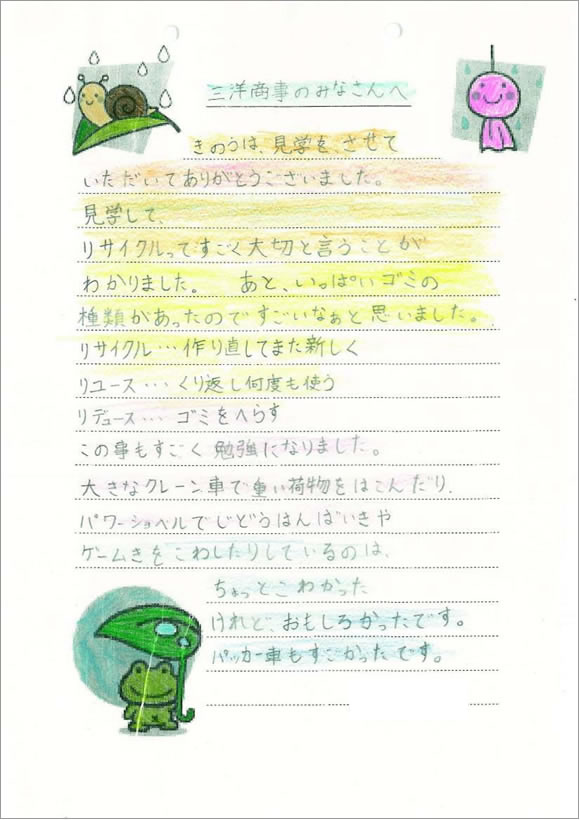 三洋商事のみなさんへ
きのうは、見学をさせて
いただいてありがとうございました。
見学して、
リサイクルってすごく大切と言うことが
わかりました。 あと、いっぱいゴミの
種類があったのですごいなぁと思いました。
リサイクル…作り直してまた新しく
リユース…くり返し何度も使う
リデュース…ゴミをへらす
この事もすごく勉強になりました。
大きなクレーン車で重い荷物をはこんだり、
パワーショベルでじどうはんばいきや
ゲームきをこわしたりしているのは、
ちょっとこわかった
けれど、おもしろかったです。
パッカー車もすごかったです。